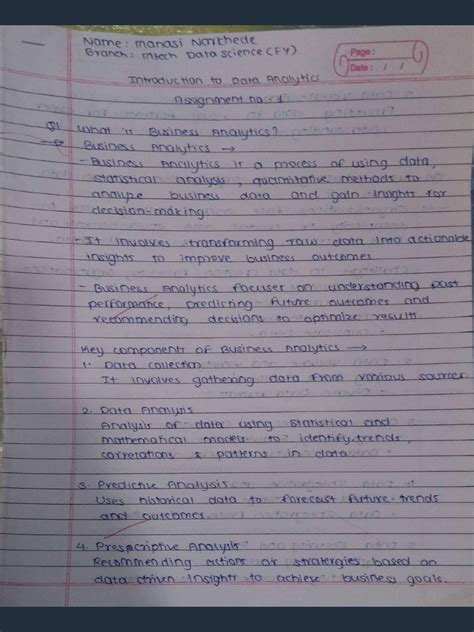 Name : Manasi Northede
Branch : Mtech Data Science (FY)
Page :
Date : / /
Introduction to Data Analytics
Assignment no - 1
Q1 What is Business Analytics?
Business Analytics →
- Business Analytics is a process of using data,
statistical analysis, quantitative methods to
analyze business data and gain insights for
decision-making.
- It involves transforming raw data into actionable
insights to improve business outcomes
- Business Analytics focuses on understanding past
performance, predicting future outcomes and
recommending decisions to optimize results.
Key components of Business Analytics →
1. Data collection
It involves gathering data from various sources
2. Data Analysis
Analysis of data using statistical and
mathematical models to identify trends,
correlations & patterns in data.
3. Predictive Analysis
Uses historical data to forecast future trends
and outcomes
4. Prescriptive Analysis
Recommending actions or stratergies based on
data driven insights to achieve business goals.